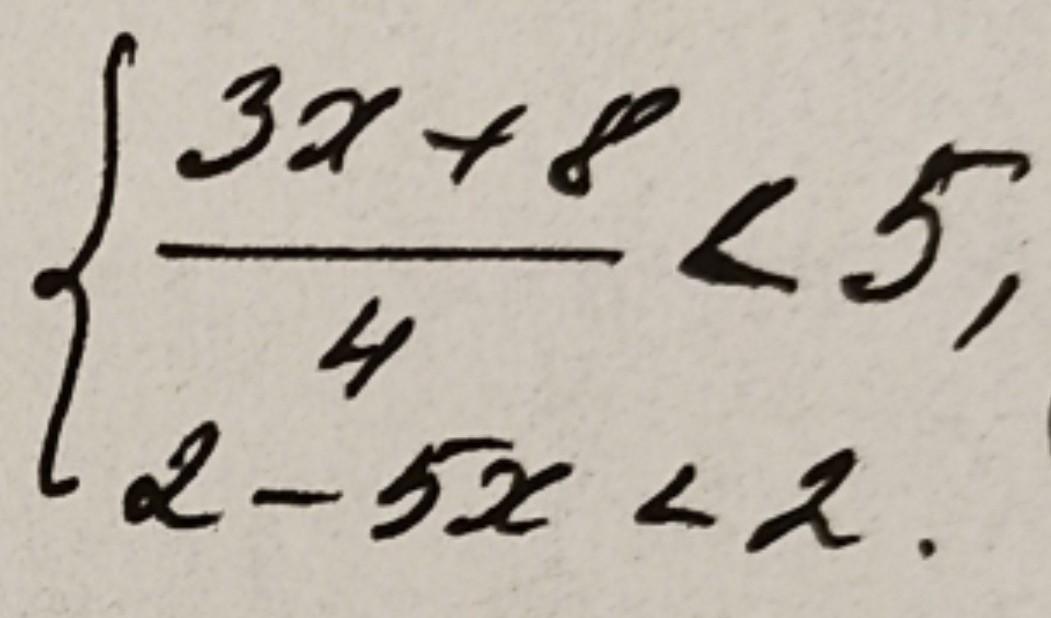 3x + 8
4
< 5,
2 - 5x < 2.